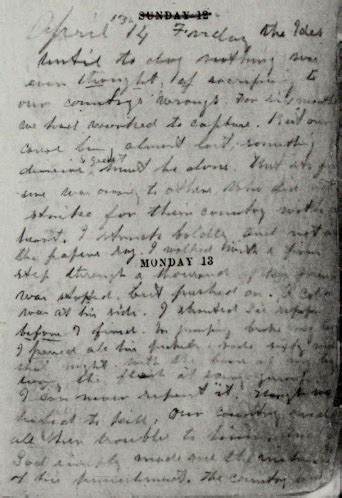 SUNDAY 12
April 14 Friday the Ides
until to day nothing was
ever thought of sacrificing to
our country's wrongs. For six months
we had worked to capture. But our
cause being almost lost, something
decisive & great must be done. But its
was owing to others, who did not
strike for their country with a
heart. I struck boldly and not as
the papers say. I walked with a firm
step through a thousand of his friends
MONDAY 13
was stopped, but pushed on. A Col
was at his side. I shouted Sic semper
before I fired. In jumping broke my leg
I passed all his pickets, rode sixty
that night, with the bone of my leg
tearing the flesh at every jump
I can never repent it, though we
hated to kill; Our country owed
all her troubles to him, and
God simply made me the instrument
of his punishment. The country is